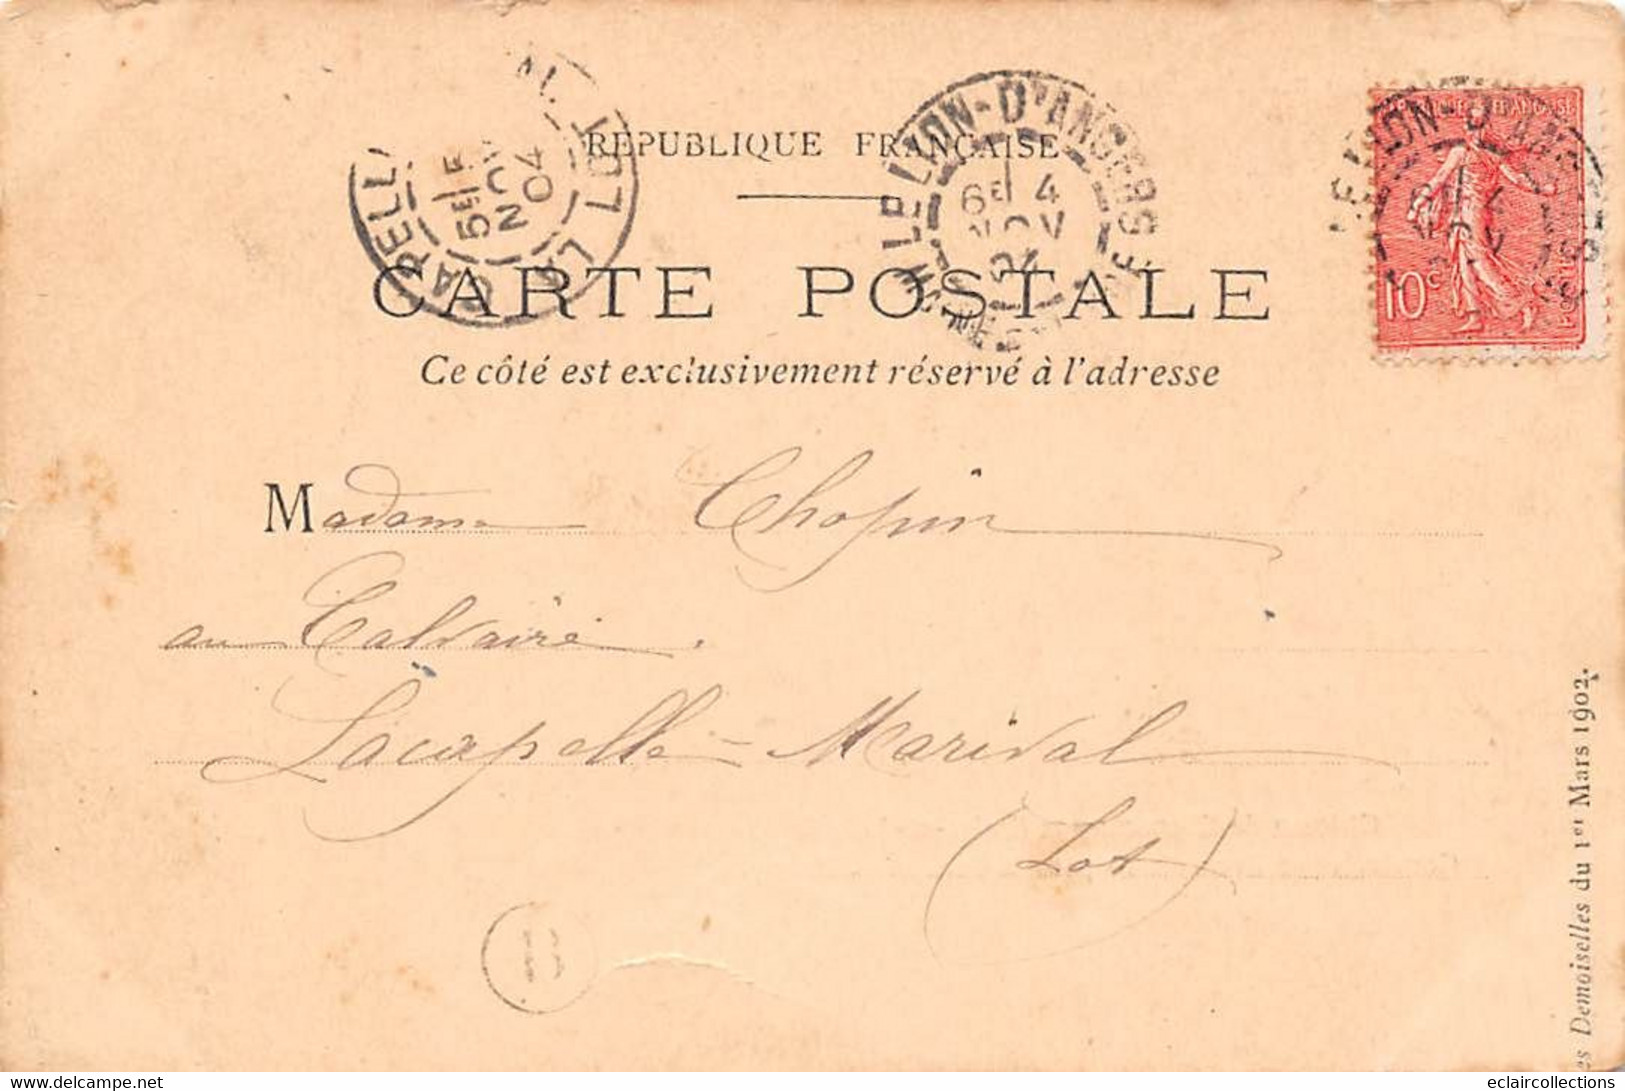 RÉPUBLIQUE FRANÇAISE
CARTE POSTALE
Ce côté est exclusivement réservé à l'adresse
LE LION-D'ANGERS
6E 4
NOV
04
LE LION-D'ANGERS
6E 4
NOV
RÉPUBLIQUE FRANÇAISE
10c
POSTES
5E
NOV
04
LOT
Madame Chopin
au Calvaire.
Lacapelle-Marival
(Lot)
Demoiselles du 1er Mars 1902.
eclaircollections